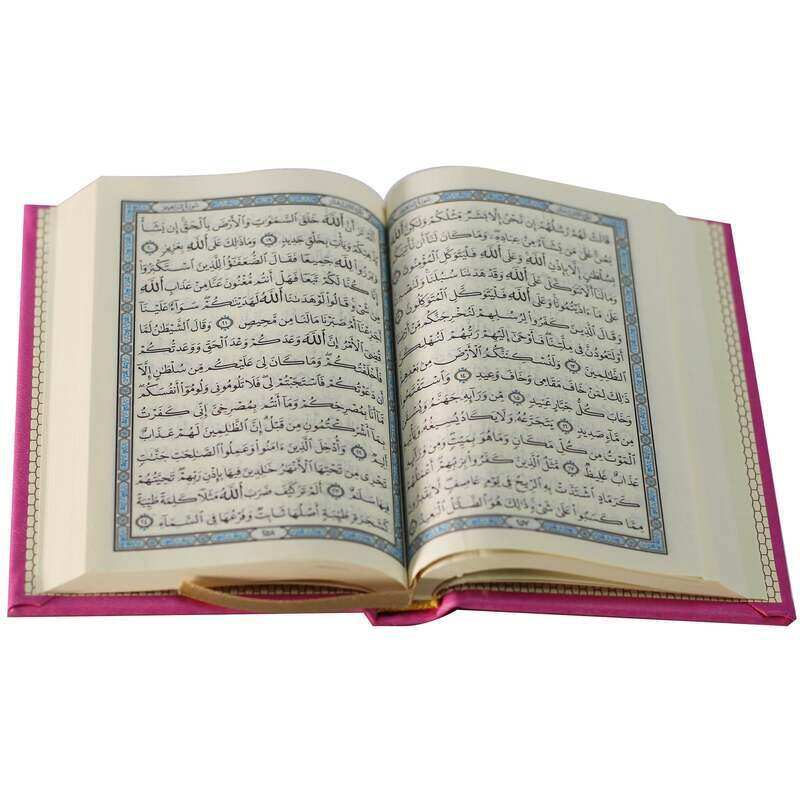 سورة إبراهيم
قَالَتْ لَهُمْ رُسُلُهُمْ إِن نَّحْنُ إِلَّا بَشَرٌ مِّثْلُكُمْ وَلَٰكِنَّ ٱللَّهَ
يَمُنُّ عَلَىٰ مَن يَشَآءُ مِنْ عِبَادِهِۦ وَمَا كَانَ لَنَآ أَن نَّأْتِيَكُم
بِسُلْطَٰنٍ إِلَّا بِإِذْنِ ٱللَّهِ وَعَلَى ٱللَّهِ فَلْيَتَوَكَّلِ ٱلْمُؤْمِنُونَ
وَمَا لَنَآ أَلَّا نَتَوَكَّلَ عَلَى ٱللَّهِ وَقَدْ هَدَىٰنَا سُبُلَنَا وَلَنَصْبِرَنَّ
عَلَىٰ مَآ ءَاذَيْتُمُونَا وَعَلَى ٱللَّهِ فَلْيَتَوَكَّلِ ٱلْمُتَوَكِّلُونَ
وَقَالَ ٱلَّذِينَ كَفَرُوا۟ لِرُسُلِهِمْ لَنُخْرِجَنَّكُم مِّنْ
أَوْ لَتَعُودُنَّ فِى مِلَّتِنَا فَأَوْحَىٰٓ إِلَيْهِمْ رَبُّهُمْ لَنُهْلِكَنَّ
ٱلظَّٰلِمِينَ ١٣ وَلَنُسْكِنَنَّكُمُ ٱلْأَرْضَ مِنۢ بَعْدِهِمْ
ذَٰلِكَ لِمَنْ خَافَ مَقَامِى وَخَافَ وَعِيدِ ١٤ وَٱسْتَفْتَحُوا۟
وَخَابَ كُلُّ جَبَّارٍ عَنِيدٍ ١٥ مِّن وَرَآئِهِۦ جَهَنَّمُ وَيُسْقَىٰ
مِن مَّآءٍ صَدِيدٍ ١٦ يَتَجَرَّعُهُۥ وَلَا يَكَادُ يُسِيغُهُۥ وَيَأْتِيهِ
ٱلْمَوْتُ مِن كُلِّ مَكَانٍ وَمَا هُوَ بِمَيِّتٍ وَمِن وَرَآئِهِۦ
عَذَابٌ غَلِيظٌ ١٧ مَّثَلُ ٱلَّذِينَ كَفَرُوا۟ بِرَبِّهِمْ أَعْمَٰلُهُمْ
كَرَمَادٍ ٱشْتَدَّتْ بِهِ ٱلرِّيحُ فِى يَوْمٍ عَاصِفٍ لَّا يَقْدِرُونَ
مِمَّا كَسَبُوا۟ عَلَىٰ شَىْءٍ ذَٰلِكَ هُوَ ٱلضَّلَٰلُ ٱلْبَعِيدُ
٢٥٧
سورة إبراهيم
أَلَمْ تَرَ أَنَّ ٱللَّهَ خَلَقَ ٱلسَّمَٰوَٰتِ وَٱلْأَرْضَ بِٱلْحَقِّ إِن يَشَأْ
يُذْهِبْكُمْ وَيَأْتِ بِخَلْقٍ جَدِيدٍ ١٩ وَمَا ذَٰلِكَ عَلَى ٱللَّهِ بِعَزِيزٍ ٢٠
وَبَرَزُوا۟ لِلَّهِ جَمِيعًا فَقَالَ ٱلضُّعَفَٰٓؤُا۟ لِلَّذِينَ ٱسْتَكْبَرُوٓا۟
إِنَّا كُنَّا لَكُمْ تَبَعًا فَهَلْ أَنتُم مُّغْنُونَ عَنَّا مِنْ عَذَابِ ٱللَّهِ
مِن شَىْءٍ قَالُوا۟ لَوْ هَدَىٰنَا ٱللَّهُ لَهَدَيْنَٰكُمْ سَوَآءٌ عَلَيْنَآ
أَجَزِعْنَآ أَمْ صَبَرْنَا مَا لَنَا مِن مَّحِيصٍ ٢١ وَقَالَ ٱلشَّيْطَٰنُ لَمَّا
قُضِىَ ٱلْأَمْرُ إِنَّ ٱللَّهَ وَعَدَكُمْ وَعْدَ ٱلْحَقِّ وَوَعَدتُّكُمْ
فَأَخْلَفْتُكُمْ وَمَا كَانَ لِىَ عَلَيْكُم مِّن سُلْطَٰنٍ إِلَّآ
أَن دَعَوْتُكُمْ فَٱسْتَجَبْتُمْ لِى فَلَا تَلُومُونِى وَلُومُوٓا۟ أَنفُسَكُم
مَّآ أَنَا۠ بِمُصْرِخِكُمْ وَمَآ أَنتُم بِمُصْرِخِىَّ إِنِّى كَفَرْتُ
بِمَآ أَشْرَكْتُمُونِ مِن قَبْلُ إِنَّ ٱلظَّٰلِمِينَ لَهُمْ عَذَابٌ
أَلِيمٌ ٢٢ وَأُدْخِلَ ٱلَّذِينَ ءَامَنُوا۟ وَعَمِلُوا۟ ٱلصَّٰلِحَٰتِ جَنَّٰتٍ
تَجْرِى مِن تَحْتِهَا ٱلْأَنْهَٰرُ خَٰلِدِينَ فِيهَا بِإِذْنِ رَبِّهِمْ تَحِيَّتُهُمْ
فِيهَا سَلَٰمٌ ٢٣ أَلَمْ تَرَ كَيْفَ ضَرَبَ ٱللَّهُ مَثَلًا كَلِمَةً طَيِّبَةً
كَشَجَرَةٍ طَيِّبَةٍ أَصْلُهَا ثَابِتٌ وَفَرْعُهَا فِى ٱلسَّمَآءِ ٢٤
٢٥٨